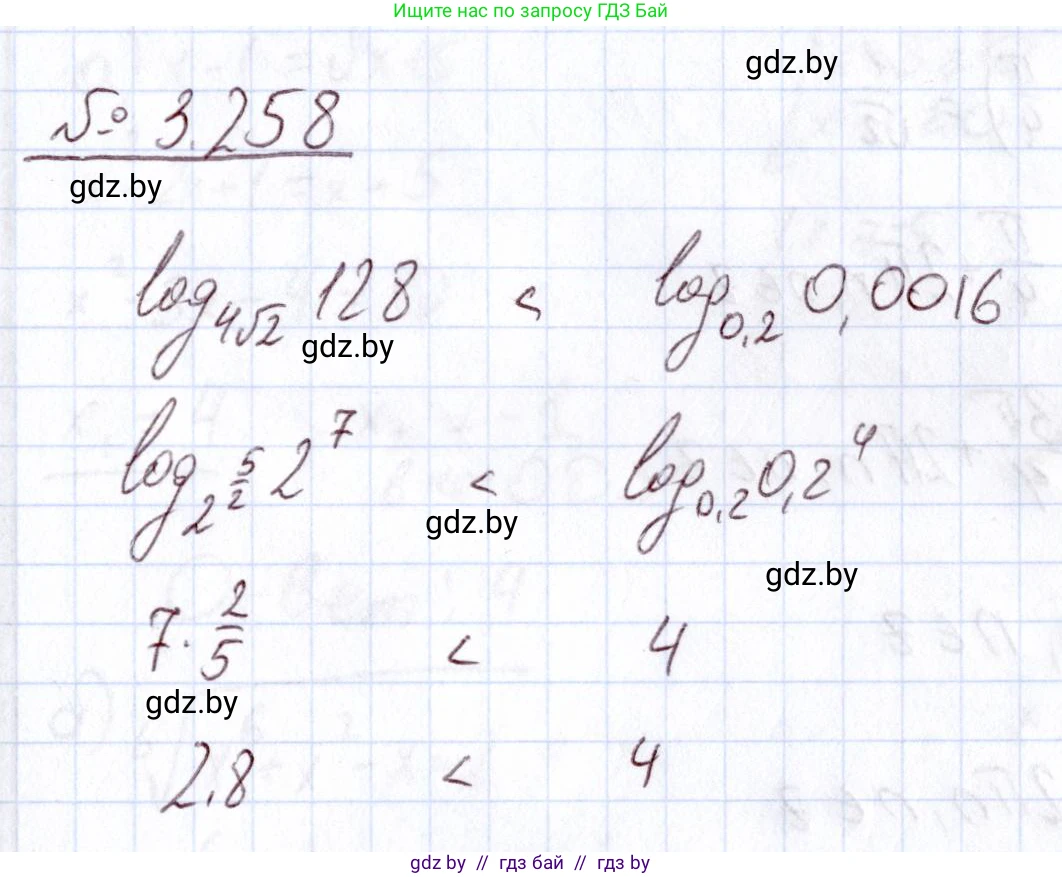 Ищите нас по запросу ГДЗ Бай
gdz.by
№ 3.258
gdz.by
log_{4√2} 128 < log_{0,2} 0,0016
gdz.by
log_{2^{5/2}} 2^7 < log_{0,2} 0,2^4
gdz.by
gdz.by
7 · 2/5 < 4
gdz.by
2,8 < 4
gdz by // гдз бай // gdz by